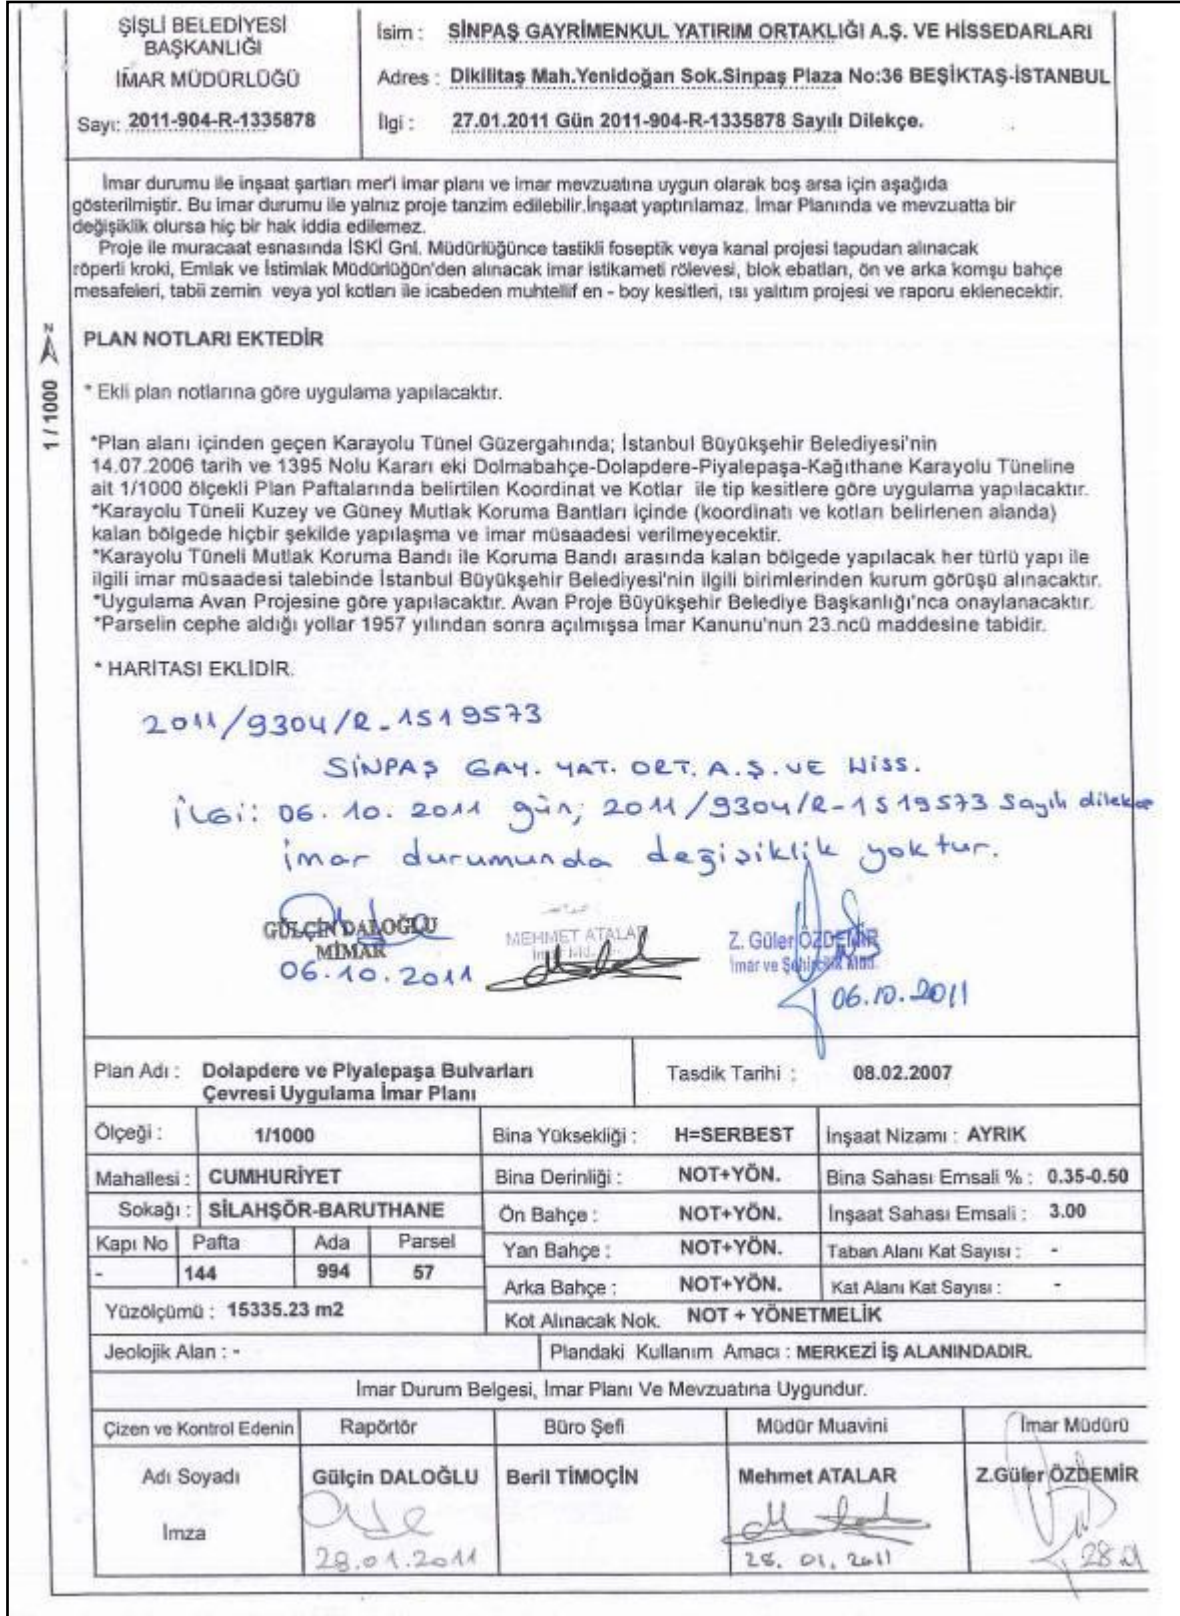 ŞİŞLİ BELEDİYESİ
BAŞKANLIĞI
İMAR MÜDÜRLÜĞÜ
Sayı: 2011-904-R-1335878
İsim : SİNPAŞ GAYRİMENKUL YATIRIM ORTAKLIĞI A.Ş. VE HİSSEDARLARI
Adres : Dikilitaş Mah.Yenidoğan Sok.Sinpaş Plaza No:36 BEŞİKTAŞ-İSTANBUL
İlgi : 27.01.2011 Gün 2011-904-R-1335878 Sayılı Dilekçe.
İmar durumu ile inşaat şartları mer'i imar planı ve imar mevzuatına uygun olarak boş arsa için aşağıda
gösterilmiştir. Bu imar durumu ile yalnız proje tanzim edilebilir.İnşaat yaptırılamaz. İmar Planında ve mevzuatta bir
değişiklik olursa hiç bir hak iddia edilemez.
Proje ile muracaat esnasında İSKİ Gnl. Müdürlüğünce tastikli foseptik veya kanal projesi tapudan alınacak
röperli kroki, Emlak ve İstimlak Müdürlüğün'den alınacak imar istikameti rölevesi, blok ebatları, ön ve arka komşu bahçe
mesafeleri, tabii zemin veya yol kotları ile icabeden muhtellif en - boy kesitleri, ısı yalıtım projesi ve raporu eklenecektir.
N
1 / 1000
PLAN NOTLARI EKTEDİR
* Ekli plan notlarına göre uygulama yapılacaktır.
*Plan alanı içinden geçen Karayolu Tünel Güzergahında; İstanbul Büyükşehir Belediyesi'nin
14.07.2006 tarih ve 1395 Nolu Kararı eki Dolmabahçe-Dolapdere-Piyalepaşa-Kağıthane Karayolu Tüneline
ait 1/1000 ölçekli Plan Paftalarında belirtilen Koordinat ve Kotlar ile tip kesitlere göre uygulama yapılacaktır.
*Karayolu Tüneli Kuzey ve Güney Mutlak Koruma Bantları içinde (koordinatı ve kotları belirlenen alanda)
kalan bölgede hiçbir şekilde yapılaşma ve imar müsaadesi verilmeyecektir.
*Karayolu Tüneli Mutlak Koruma Bandı ile Koruma Bandı arasında kalan bölgede yapılacak her türlü yapı ile
ilgili imar müsaadesi talebinde İstanbul Büyükşehir Belediyesi'nin ilgili birimlerinden kurum görüşü alınacaktır.
*Uygulama Avan Projesine göre yapılacaktır. Avan Proje Büyükşehir Belediye Başkanlığı'nca onaylanacaktır.
*Parselin cephe aldığı yollar 1957 yılından sonra açılmışsa İmar Kanunu'nun 23.ncü maddesine tabidir.
* HARİTASI EKLİDİR.
2011/9304/R-1519573
SİNPAŞ GAY. YAT. ORT. A.Ş. VE HİSS.
İLGİ: 06.10.2011 gün; 2011/9304/R-1519573 Sayılı dilekçe
imar durumunda değişiklik yoktur.
GÜLÇİN DALOĞLU
MİMAR
06.10.2011
MEHMET ATALAR
Z. Güler ÖZDEMİR
İmar ve Şehircilik Müd.
06.10.2011
Plan Adı : Dolapdere ve Piyalepaşa Bulvarları
Çevresi Uygulama İmar Planı
Tasdik Tarihi : 08.02.2007
Ölçeği : 1/1000
Bina Yüksekliği : H=SERBEST
İnşaat Nizamı : AYRIK
Mahallesi : CUMHURİYET
Bina Derinliği : NOT+YÖN.
Bina Sahası Emsali % : 0.35-0.50
Sokağı : SİLAHŞÖR-BARUTHANE
Ön Bahçe : NOT+YÖN.
İnşaat Sahası Emsali : 3.00
Kapı No Pafta Ada Parsel
Yan Bahçe : NOT+YÖN.
Taban Alanı Kat Sayısı : -
- 144 994 57
Arka Bahçe : NOT+YÖN.
Kat Alanı Kat Sayısı : -
Yüzölçümü : 15335.23 m2
Kot Alınacak Nok. NOT + YÖNETMELİK
Jeolojik Alan : -
Plandaki Kullanım Amacı : MERKEZİ İŞ ALANINDADIR.
İmar Durum Belgesi, İmar Planı Ve Mevzuatına Uygundur.
Çizen ve Kontrol Edenin Rapörtör Büro Şefi Müdür Muavini İmar Müdürü
Adı Soyadı Gülçin DALOĞLU Beril TİMOÇİN Mehmet ATALAR Z.Güler ÖZDEMİR
İmza
28.01.2011
28. 01. 2011
28.